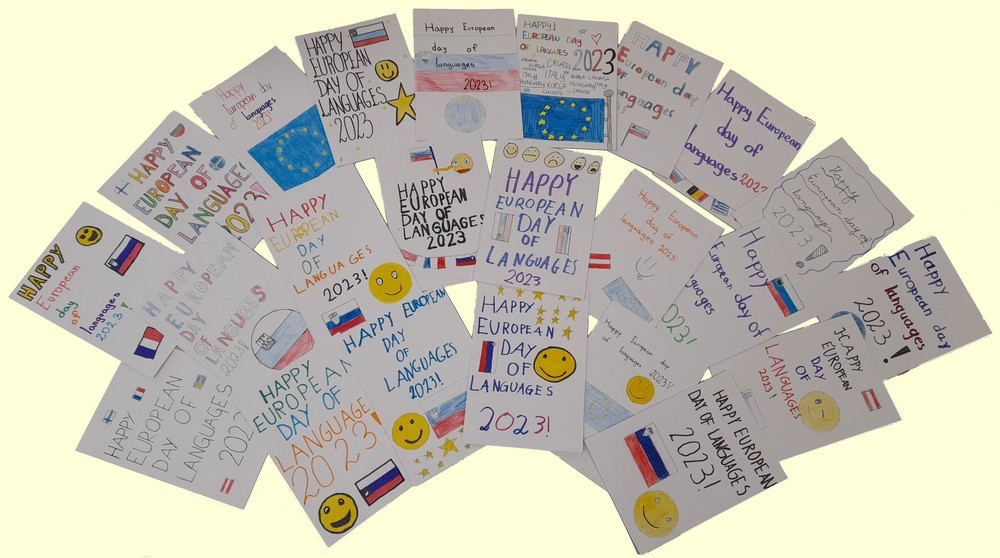 HAPPY
EUROPEAN
DAY OF
LANGUAGES
2023
Happy European
day of
languages
2023!
HAPPY!
EUROPEAN DAY
OF LANGUES
2023
HAPPY
European day
of
languages
Happy European
day of
languages 2023
Happy
European day
of languages
2023!
HAPPY
EUROPEAN
DAY OF
LANGUAGE
2023
HAPPY
European
day
of
languages
2023!
HAPPY
EUROPEAN
DAY OF
LANGUAGES
2023
HAPPY
EUROPEAN
DAY
OF
LANGUAGES
2023
HAPPY
EUROPEAN
DAY
OF
LANGUAGES
2023!
Happy
European
day of
languages 2023!
Happy
European day of
languages
2023!
Happy
European day of
languages
2023
Happy
European day
of languages
2023!
HAPPY
EUROPEAN
DAY OF
LANGUAGES
2023!
HAPPY
EUROPEAN
DAY OF
LANGUAGES
2023!
HAPPY
EUROPEAN
DAY OF
LANGUAGES
2023
HAPPY
EUROPEAN
DAY OF
LANGUAGE
2023
HAPPY EUROPEAN
DAY
OF
LANGUAGES
2023!
HAPPY
EUROPEAN
DAY
OF
LANGUAGES
2023!
Happy European day
of
languages
2023!
HAPPY
EUROPEAN
DAY
OF
LANGUAGES
2023!
HAPPY EUROPEAN
DAY OF LANGUAGES
2023!